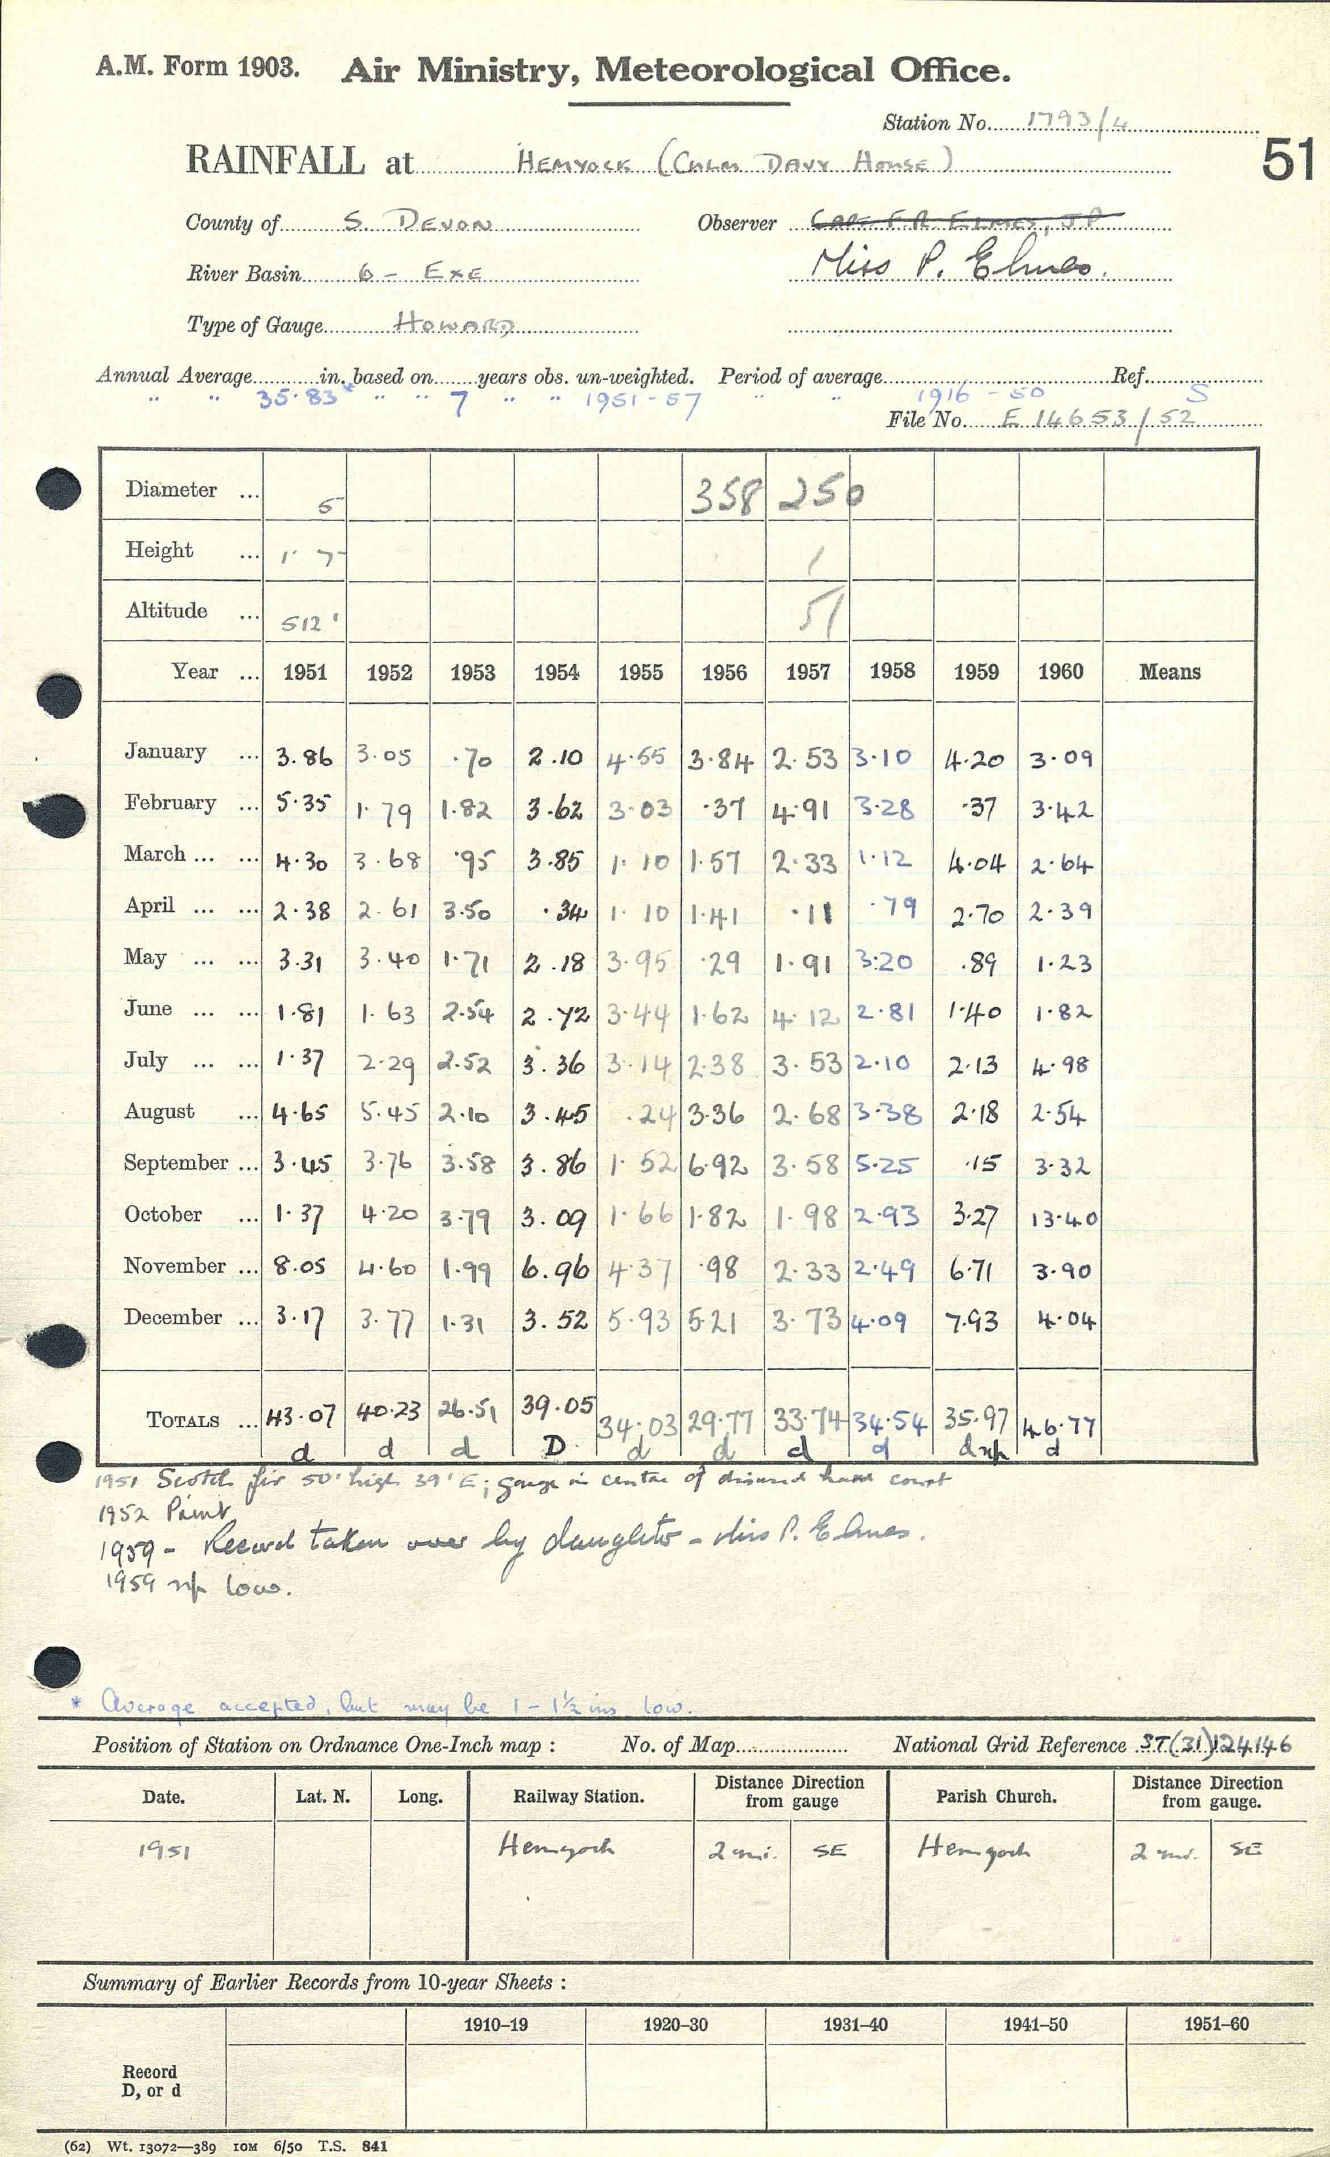 A.M. Form 1903. Air Ministry, Meteorological Office.
Station No. 1793/4
RAINFALL at HEMYOCK (CULM DAVY HOUSE) 51
County of S. DEVON Observer CAPT. F.R. ELMES, J.P.
River Basin 6 - EXE Miss P. Elmes.
Type of Gauge HOWARD
Annual Average in. based on years obs. un-weighted. Period of average Ref.
" " 35.83* " " 7 " " 1951-57 " " 1916-50 S
File No. E 14653/52
Diameter ... 5 358 250
Height ... 1' 7" 1
Altitude ... 512' 51
Year ... 1951 1952 1953 1954 1955 1956 1957 1958 1959 1960 Means
January ... 3.86 3.05 .70 2.10 4.55 3.84 2.53 3.10 4.20 3.09
February ... 5.35 1.79 1.82 3.62 3.03 .37 4.91 3.28 .37 3.42
March ... ... 4.30 3.68 .95 3.85 1.10 1.57 2.33 1.12 4.04 2.64
April ... ... 2.38 2.61 3.50 .34 1.10 1.41 .11 .79 2.70 2.39
May ... ... 3.31 3.40 1.71 2.18 3.95 .29 1.91 3.20 .89 1.23
June ... ... 1.81 1.63 2.54 2.72 3.44 1.62 4.12 2.81 1.40 1.82
July ... ... 1.37 2.29 2.52 3.36 3.14 2.38 3.53 2.10 2.13 4.98
August ... 4.65 5.45 2.10 3.45 .24 3.36 2.68 3.38 2.18 2.54
September ... 3.45 3.76 3.58 3.86 1.52 6.92 3.58 5.25 .15 3.32
October ... 1.37 4.20 3.79 3.09 1.66 1.82 1.98 2.93 3.27 13.40
November ... 8.05 4.60 1.99 6.96 4.37 .98 2.33 2.49 6.71 3.90
December ... 3.17 3.77 1.31 3.52 5.93 5.21 3.73 4.09 7.93 4.04
TOTALS ... 43.07 40.23 26.51 39.05 34.03 29.77 33.74 34.54 35.97 46.77
d d d D d d d d d np d
1951 Scotch fir 50' high 39' E; gauge in centre of disused hard court
1952 Paint
1959 - Record taken over by daughter - Miss P. Elmes.
1959 np low.
* Average accepted, but may be 1 - 1½ ins low.
Position of Station on Ordnance One-Inch map : No. of Map National Grid Reference ST(31)124146
Date. Lat. N. Long. Railway Station. Distance from gauge Direction Parish Church. Distance from gauge. Direction
1951 Hemyock 2 mi. SE Hemyock 2 mi. SE
Summary of Earlier Records from 10-year Sheets :
1910–19 1920–30 1931–40 1941–50 1951–60
Record
D, or d
(62) Wt. 13072—389 10M 6/50 T.S. 841